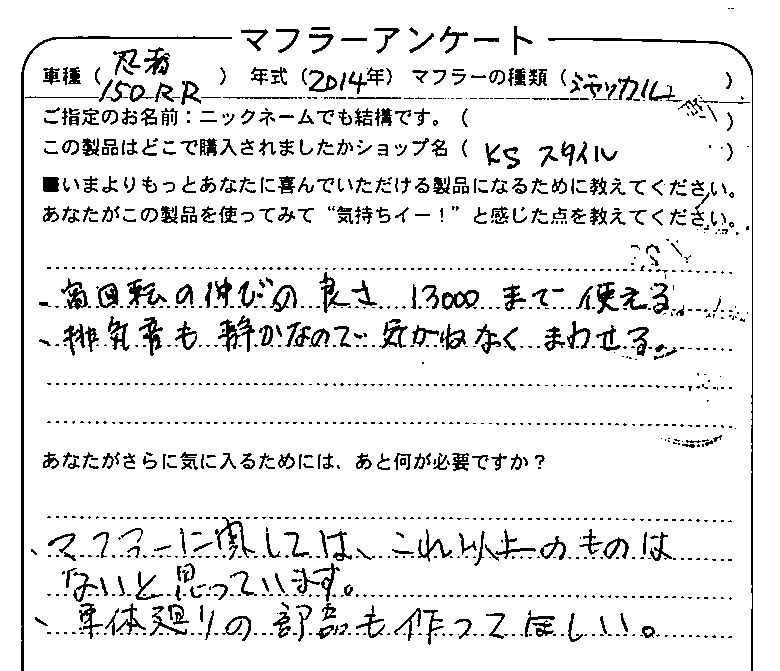 マフラーアンケート
車種（忍者 150RR） 年式（2014年） マフラーの種類（ジャッカル）
ご指定のお名前：ニックネームでも結構です。（ ）
この製品はどこで購入されましたかショップ名（KSスタイル）
■いまよりもっとあなたに喜んでいただける製品になるために教えてください。
あなたがこの製品を使ってみて“気持ちイー！”と感じた点を教えてください。
、高回転の伸びの良さ 13000まで使える
、排気音も静かなので気がねなくまわせる。
あなたがさらに気に入るためには、あと何が必要ですか？
、マフラーに関しては、これ以上のものは
ないと思っています。
、車体廻りの部品も作ってほしい。